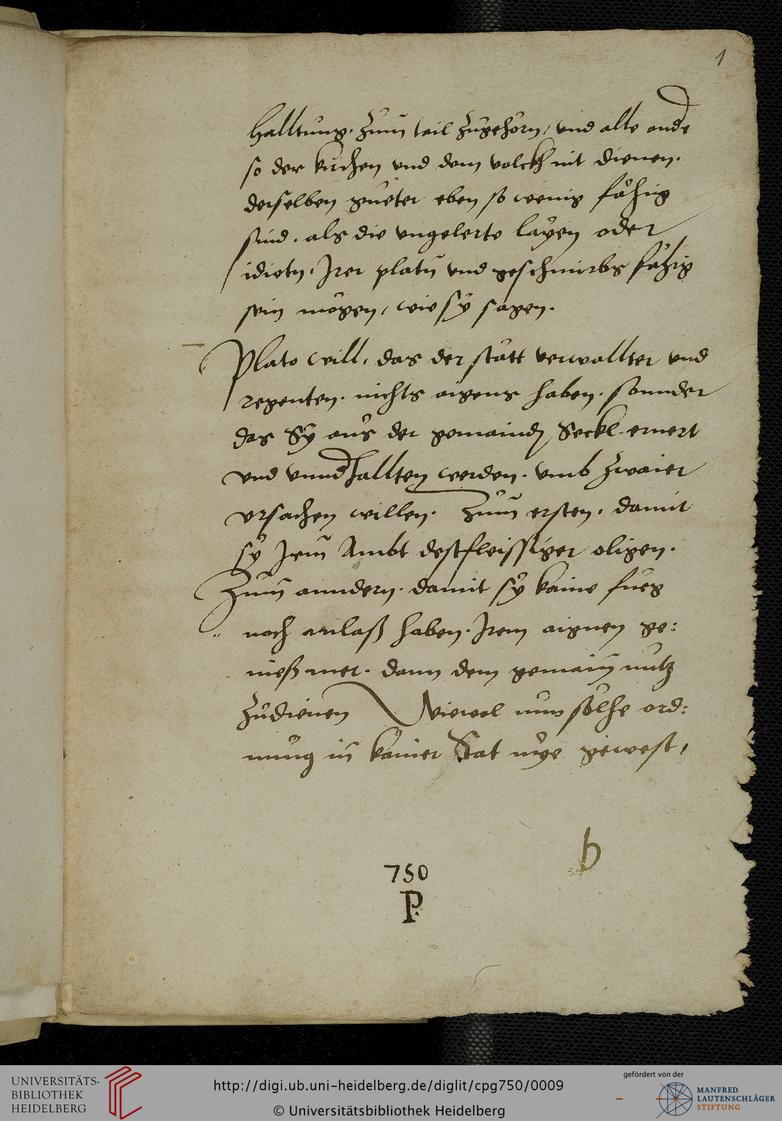 1
halltung. zum tail zugehörn, und alle ande
so der kirchen und dem volckh nit dienen.
derselben güeter eben so wenig fähig
sind. als die ungelerte layen oder
idiotn. Irer platn und geschmirbs fähig
sein mögen, wie sÿ sagen.
Plato will, das der statt verwallter und
regenten. nichts aigens haben. sonnder
das Sÿ aus der gemaind Seckl. ernert
und unndhallten werden. umb zwaier
ursachen willen. Zum ersten. damit
sÿ Irem Ambt destfleissiger obligen.
Zum anndern. damit sÿ kaine fueg
noch anlaß haben. Irem aignen ge:
nieß mer. dann dem gemain nutz
zudienen Wiewol nun sölhe ord:
nung in kainer Stat nÿe gewest,
b
750
P.
UNIVERSITÄTS-
BIBLIOTHEK
HEIDELBERG
http://digi.ub.uni-heidelberg.de/diglit/cpg750/0009
© Universitätsbibliothek Heidelberg
gefördert von der
MANFRED
LAUTENSCHLÄGER
STIFTUNG